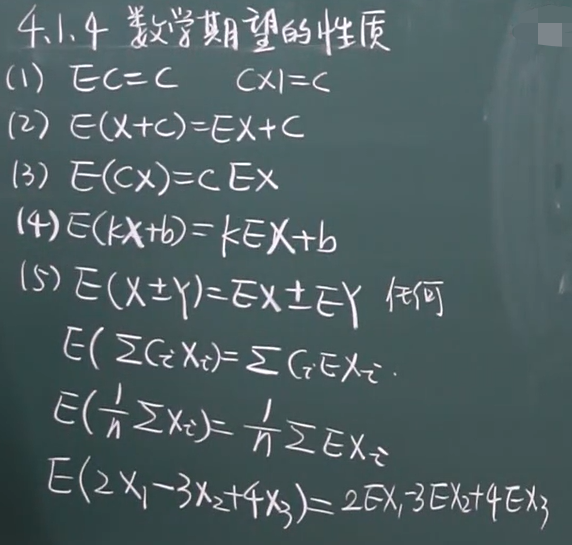 4.1.4 数学期望的性质
(1) EC=C C×1=C
(2) E(X+C)=EX+C
(3) E(CX)=CEX
(4) E(kX+b)=kEX+b
(5) E(X±Y)=EX±EY 任何
E(ΣCᵢXᵢ)=ΣCᵢEXᵢ.
E(1/n ΣXᵢ)=1/n ΣEXᵢ
E(2X₁-3X₂+4X₃)=2EX₁-3EX₂+4EX₃